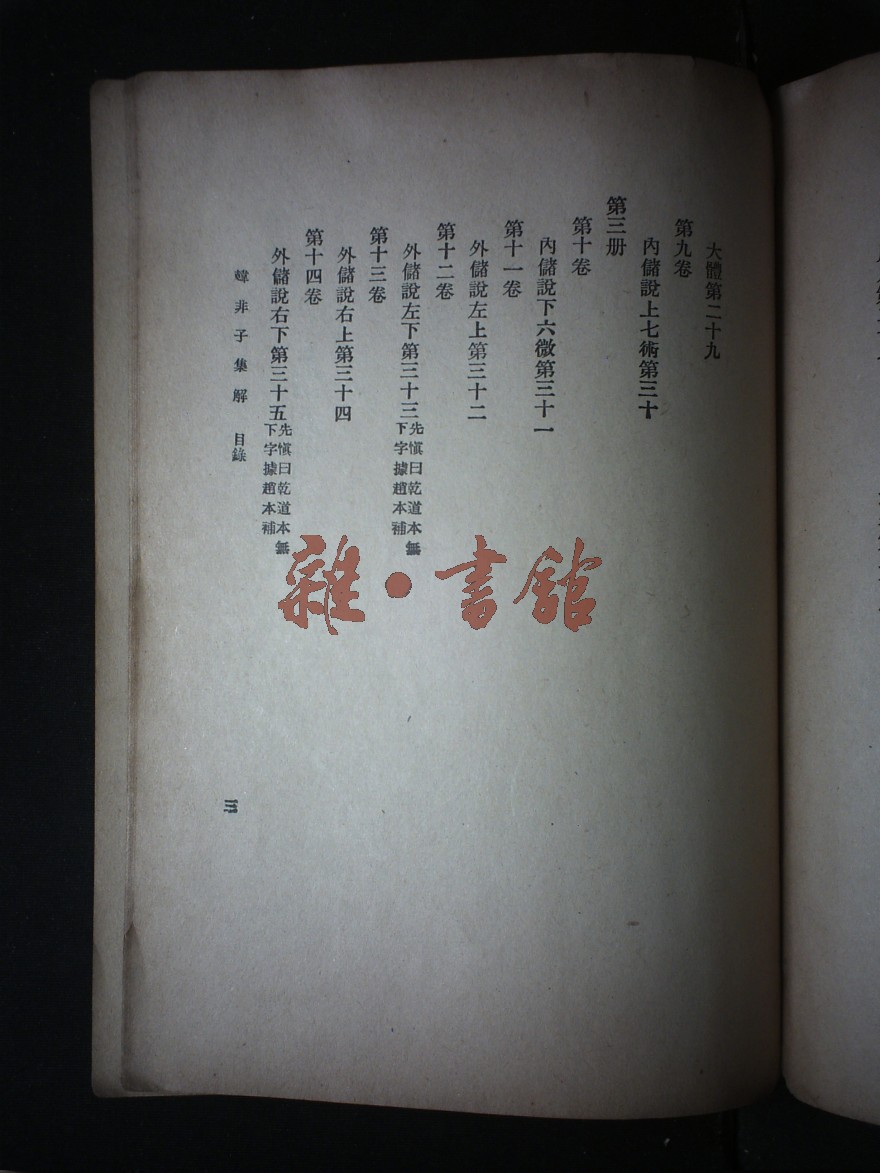 大體第二十九
第九卷
內儲說上七術第三十
第三册
第十卷
內儲說下六微第三十一
第十一卷
外儲說左上第三十二
第十二卷
外儲說左下第三十三先愼曰乾道本無下字據趙本補
第十三卷
外儲說右上第三十四
第十四卷
外儲說右下第三十五先愼曰乾道本無下字據趙本補
韓非子集解 目錄
三
雜·書館